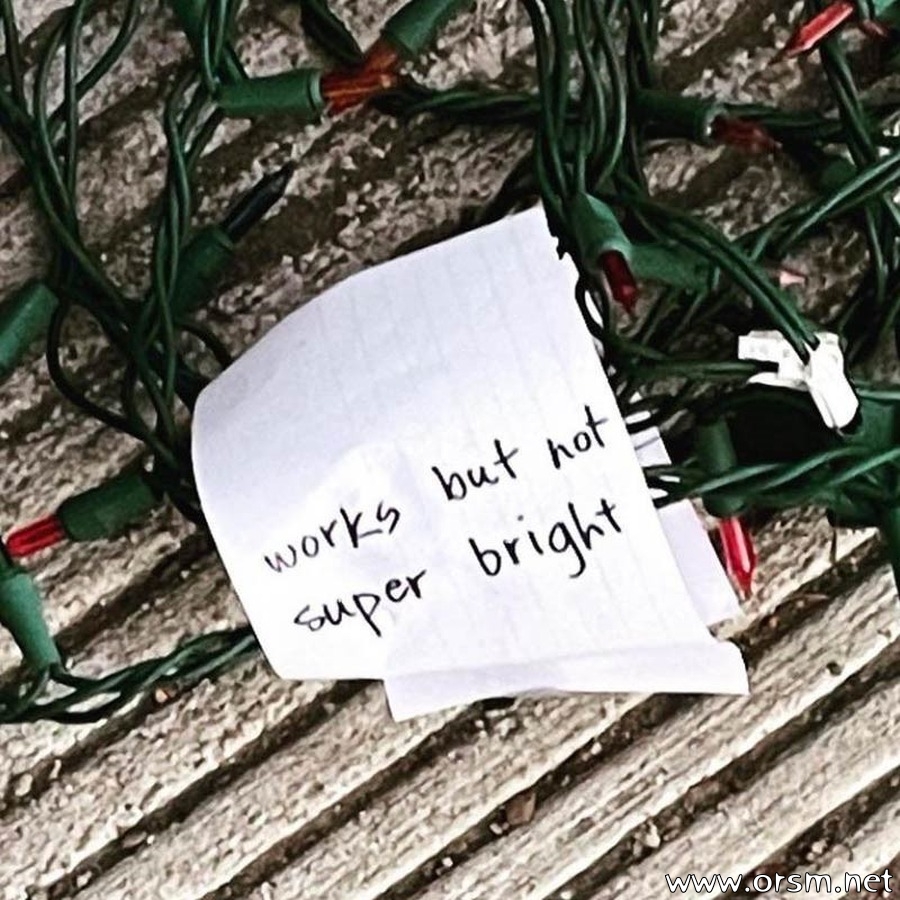 works but not
super bright
www.orsm.net